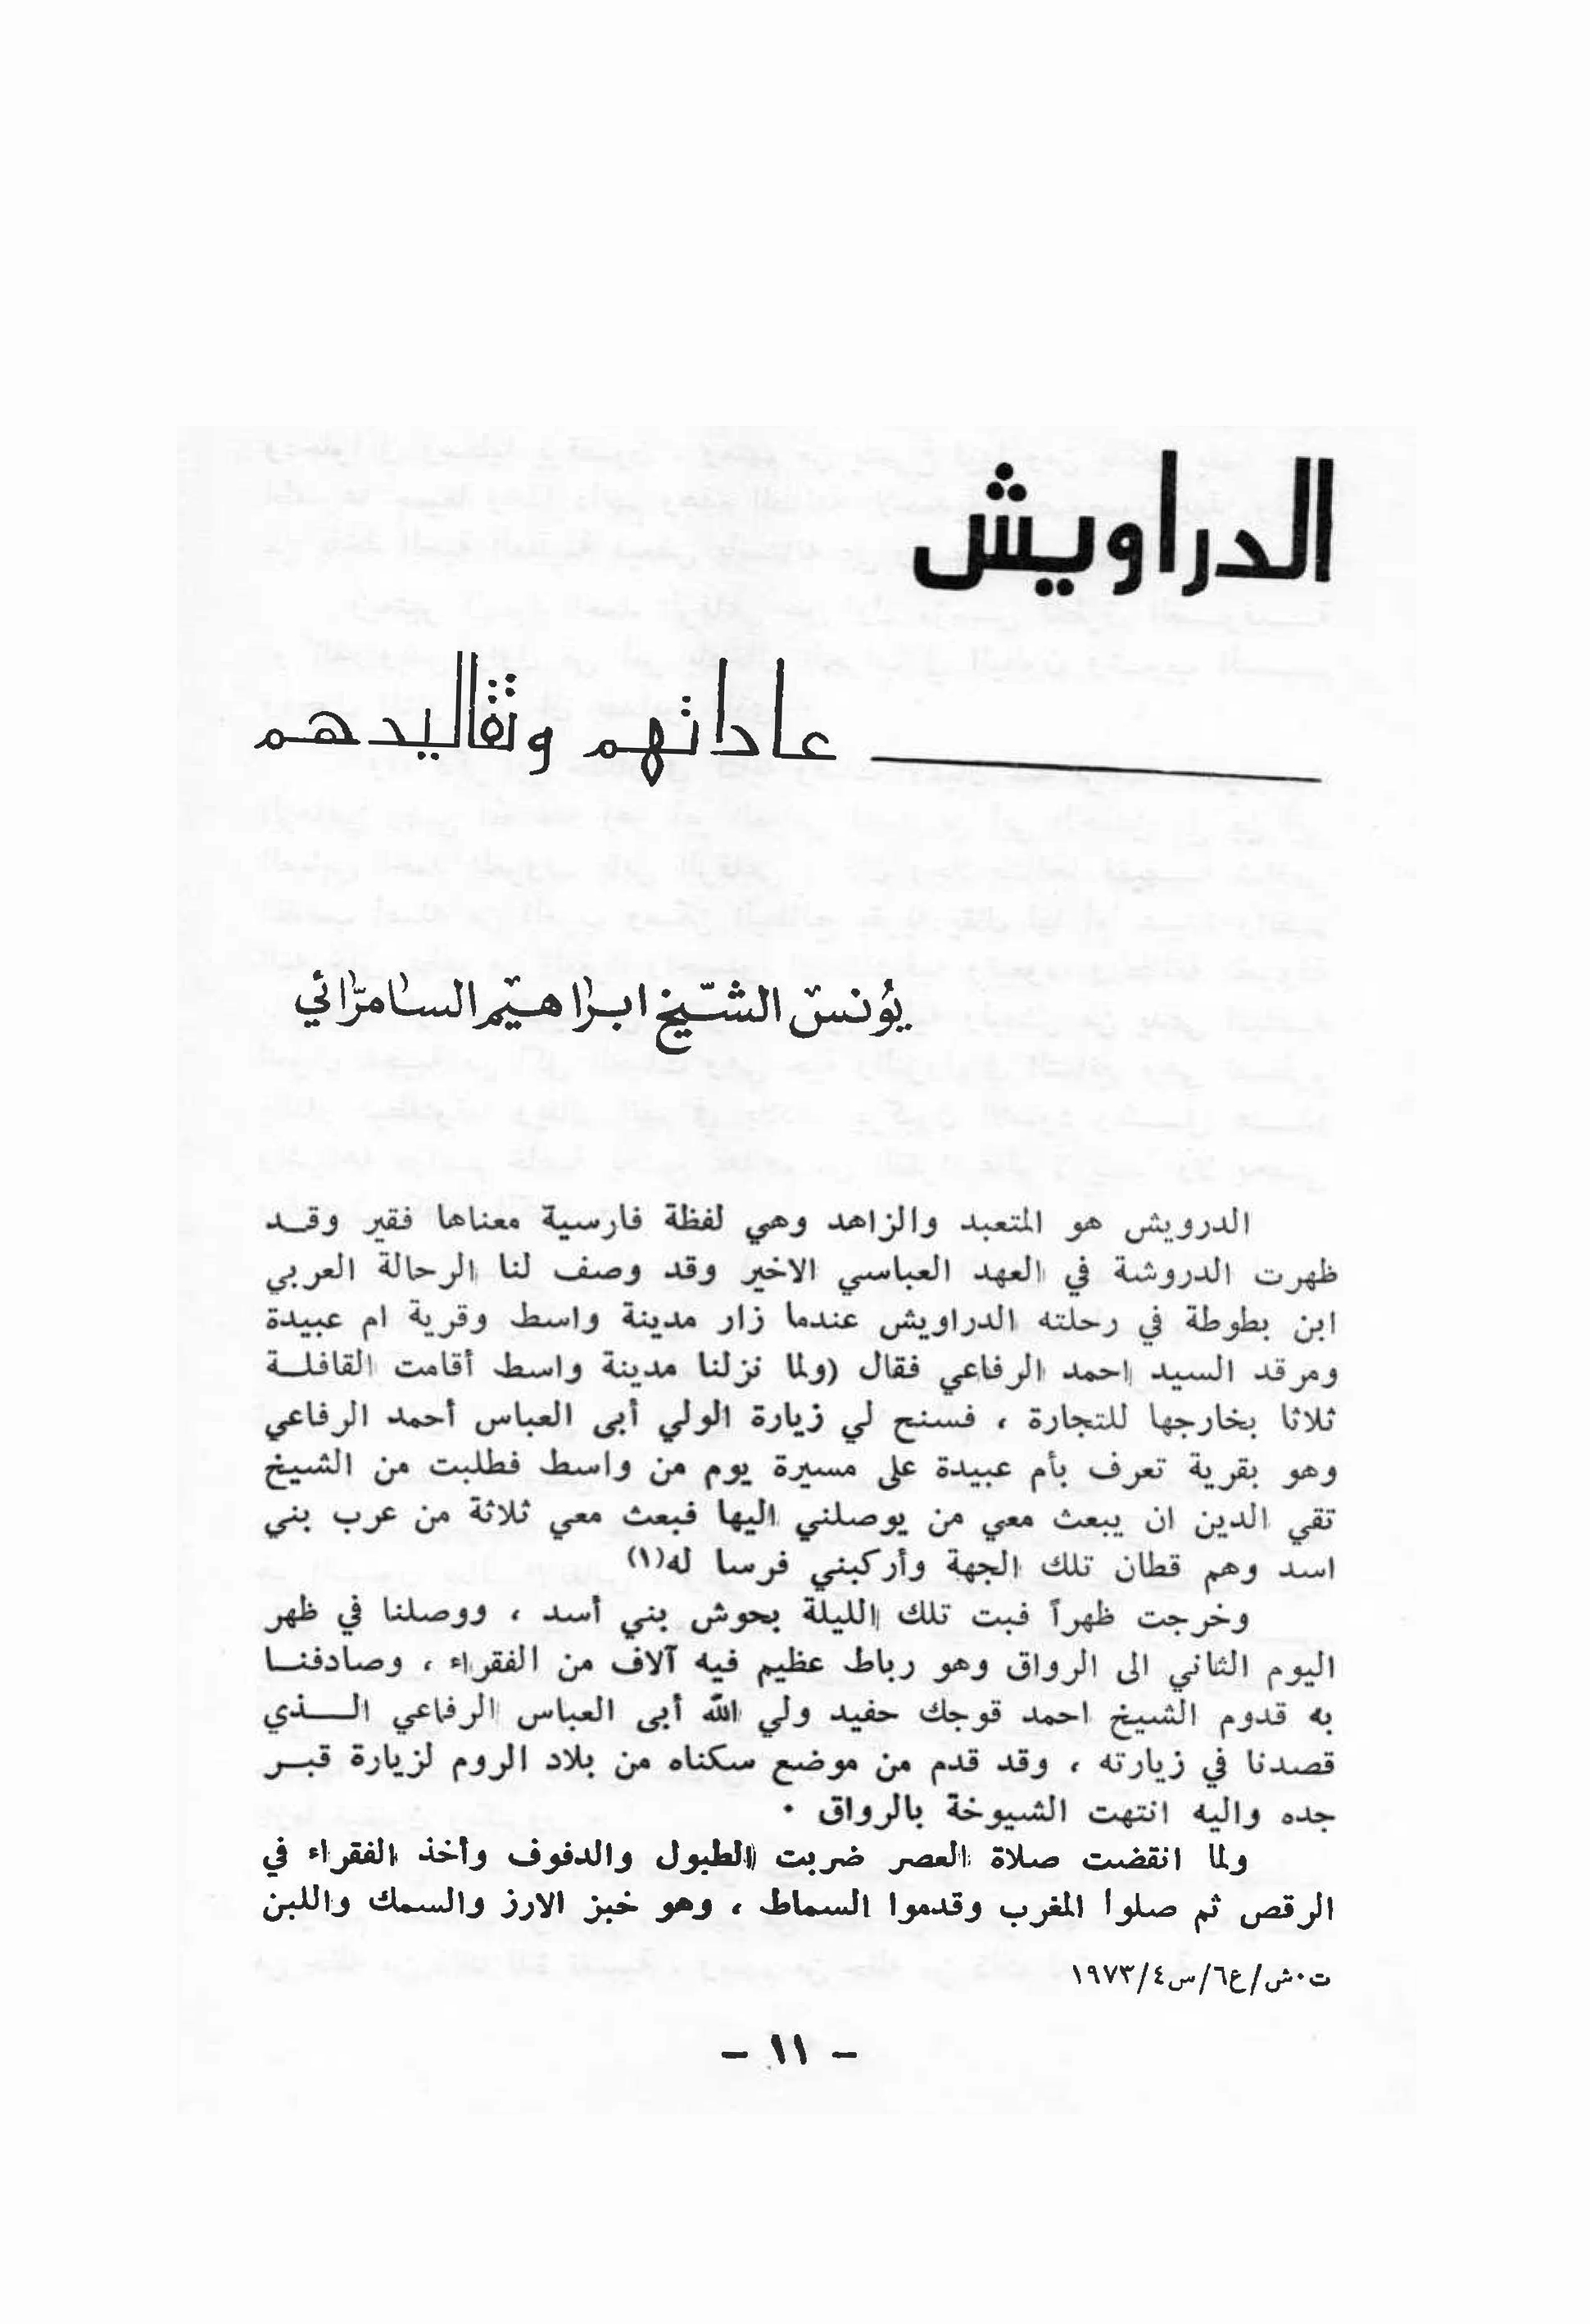 الدراويش
عاداتهم وتقاليدهم
يونس الشيخ ابراهيم السامرائي
الدرويش هو المتعبد والزاهد وهي لفظة فارسية معناها فقير وقد
ظهرت الدروشة في العهد العباسي الاخير وقد وصف لنا الرحالة العربي
ابن بطوطة في رحلته الدراويش عندما زار مدينة واسط وقرية ام عبيدة
ومرقد السيد احمد الرفاعي فقال (ولما نزلنا مدينة واسط أقامت القافلة
ثلاثا بخارجها للتجارة ، فسنح لي زيارة الولي أبى العباس أحمد الرفاعي
وهو بقرية تعرف بأم عبيدة على مسيرة يوم من واسط فطلبت من الشيخ
تقي الدين ان يبعث معي من يوصلني اليها فبعث معي ثلاثة من عرب بني
اسد وهم قطان تلك الجهة وأركبني فرسا له(١)
وخرجت ظهراً فبت تلك الليلة بحوش بني أسد ، ووصلنا في ظهر
اليوم الثاني الى الرواق وهو رباط عظيم فيه آلاف من الفقراء ، وصادفنا
به قدوم الشيخ احمد قوجك حفيد ولي الله أبى العباس الرفاعي الذي
قصدنا في زيارته ، وقد قدم من موضع سكناه من بلاد الروم لزيارة قبر
جده واليه انتهت الشيوخة بالرواق ٠
ولما انقضت صلاة العصر ضربت الطبول والدفوف وأخذ الفقراء في
الرقص ثم صلوا المغرب وقدموا السماط ، وهو خبز الارز والسمك واللبن
ت٠ش/ع٦/س٤/١٩٧٣
- ١١ -